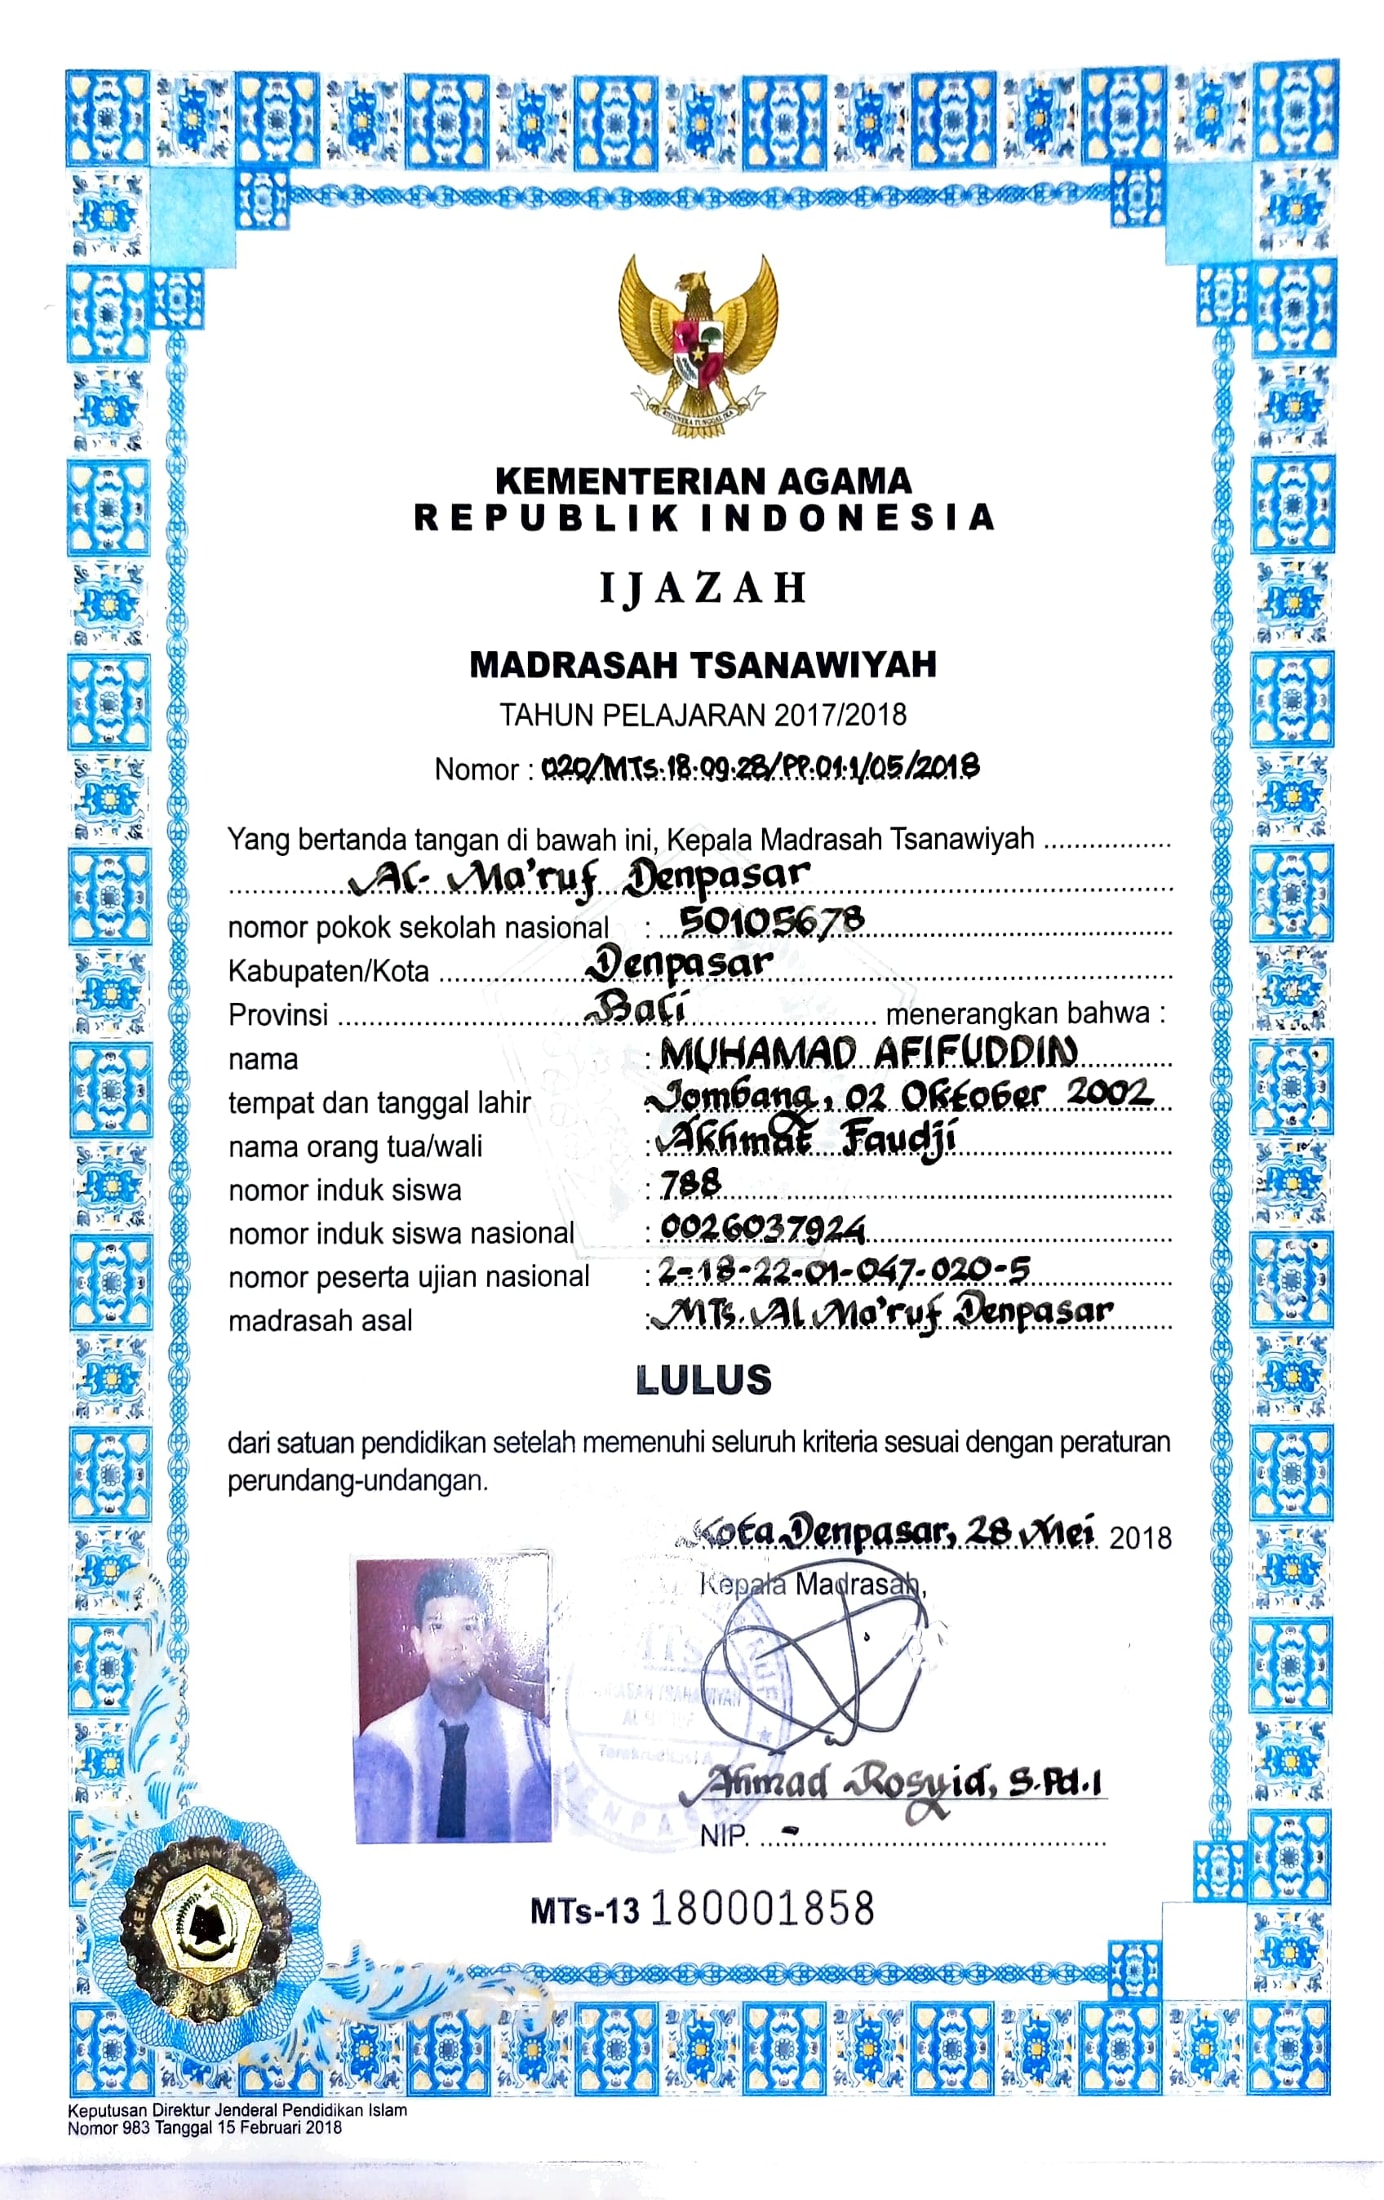 BHINNEKA TUNGGAL IKA
KEMENTERIAN AGAMA
REPUBLIK INDONESIA
IJAZAH
MADRASAH TSANAWIYAH
TAHUN PELAJARAN 2017/2018
Nomor : 020/MTs.18.09.28/PP.01.1/05/2018
Yang bertanda tangan di bawah ini, Kepala Madrasah Tsanawiyah
Al- Ma'ruf Denpasar
nomor pokok sekolah nasional : 50105678
Kabupaten/Kota Denpasar
Provinsi Bali menerangkan bahwa :
nama : MUHAMAD AFIFUDDIN
tempat dan tanggal lahir : Jombang, 02 Oktober 2002
nama orang tua/wali : Akhmat Faudji
nomor induk siswa : 788
nomor induk siswa nasional : 0026037924
nomor peserta ujian nasional : 2-18-22-01-047-020-5
madrasah asal : MTs. Al Ma'ruf Denpasar
LULUS
dari satuan pendidikan setelah memenuhi seluruh kriteria sesuai dengan peraturan
perundang-undangan.
Kota Denpasar, 28 Mei 2018
Kepala Madrasah,
MADRASAH TSANAWIYAH
Terakreditasi A
DENPASAR
Ahmad Rosyid, S.Pd.I
NIP. -
MTs-13 180001858
KEMENTERIAN AGAMA RI
Keputusan Direktur Jenderal Pendidikan Islam
Nomor 983 Tanggal 15 Februari 2018